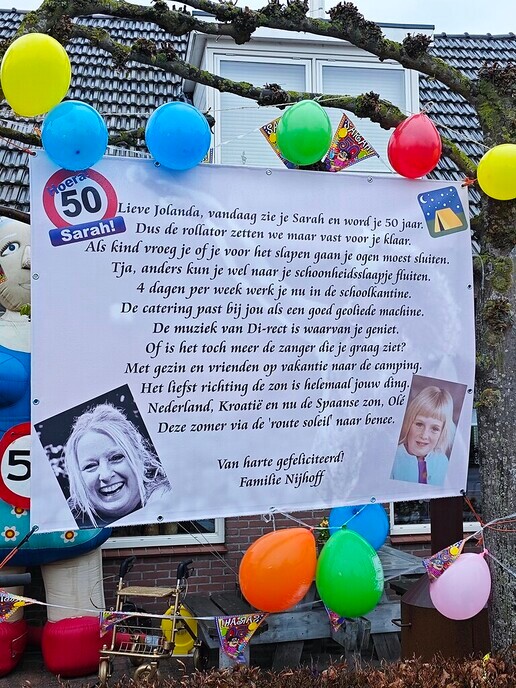 Hoera!
50
Sarah!
Lieve Jolanda, vandaag zie je Sarah en word je 50 jaar.
Dus de rollator zetten we maar vast voor je klaar.
Als kind vroeg je of je voor het slapen gaan je ogen moest sluiten.
Tja, anders kun je wel naar je schoonheidsslaapje fluiten.
4 dagen per week werk je nu in de schoolkantine.
De catering past bij jou als een goed geoliede machine.
De muziek van Di-rect is waarvan je geniet.
Of is het toch meer de zanger die je graag ziet?
Met gezin en vrienden op vakantie naar de camping.
Het liefst richting de zon is helemaal jouw ding.
Nederland, Kroatië en nu de Spaanse zon, Olé
Deze zomer via de 'route soleil' naar benee.
Van harte gefeliciteerd!
Familie Nijhoff
5
50
SARAH